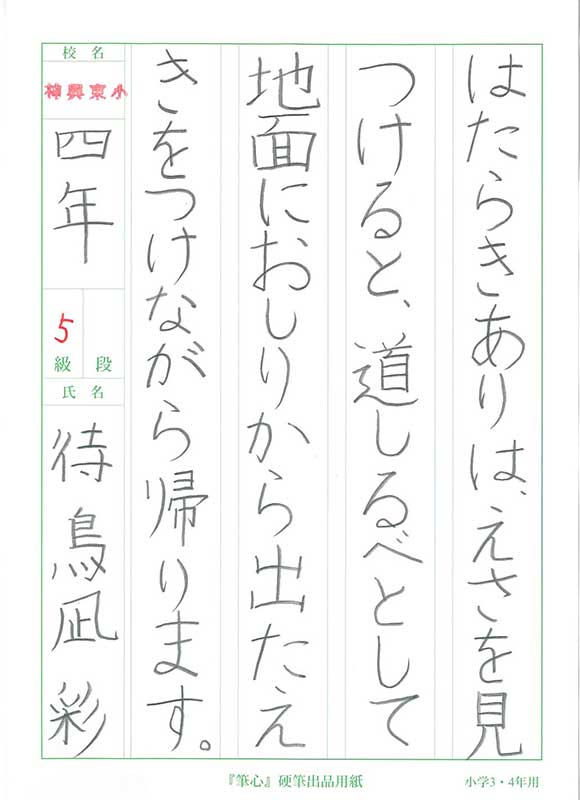 はたらきありは、えさを見
つけると、道しるべとして
地面におしりから出たえ
きをつけながら帰ります。
校名
神興東小
四年
5
級 段
氏名
待鳥凪彩
『筆心』硬筆出品用紙
小学3・4年用